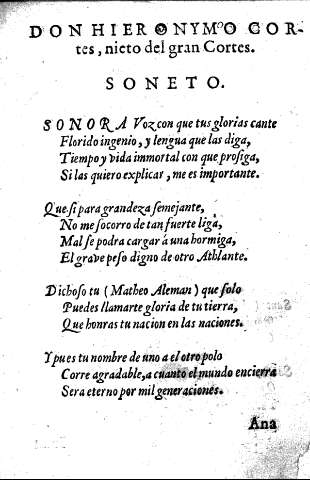 DON HIERONYMO COR-
tes, nieto del gran Cortes.
SONETO.
SONORA Voz con que tus glorias cante
Florido ingenio, y lengua que las diga,
Tiempo y vida immortal con que prosiga,
Si las quiero explicar, me es importante.
Que si para grandeza semejante,
No me socorro de tan fuerte liga,
Mal se podra cargar á una hormiga,
El grave peso digno de otro Athlante.
Dichoso tu (Matheo Aleman) que solo
Puedes llamarte gloria de tu tierra,
Que honras tu nacion en las naciones.
Y pues tu nombre de uno a el otro polo
Corre agradable, a cuanto el mundo encierra
Sera eterno por mil generaciones.
Ana